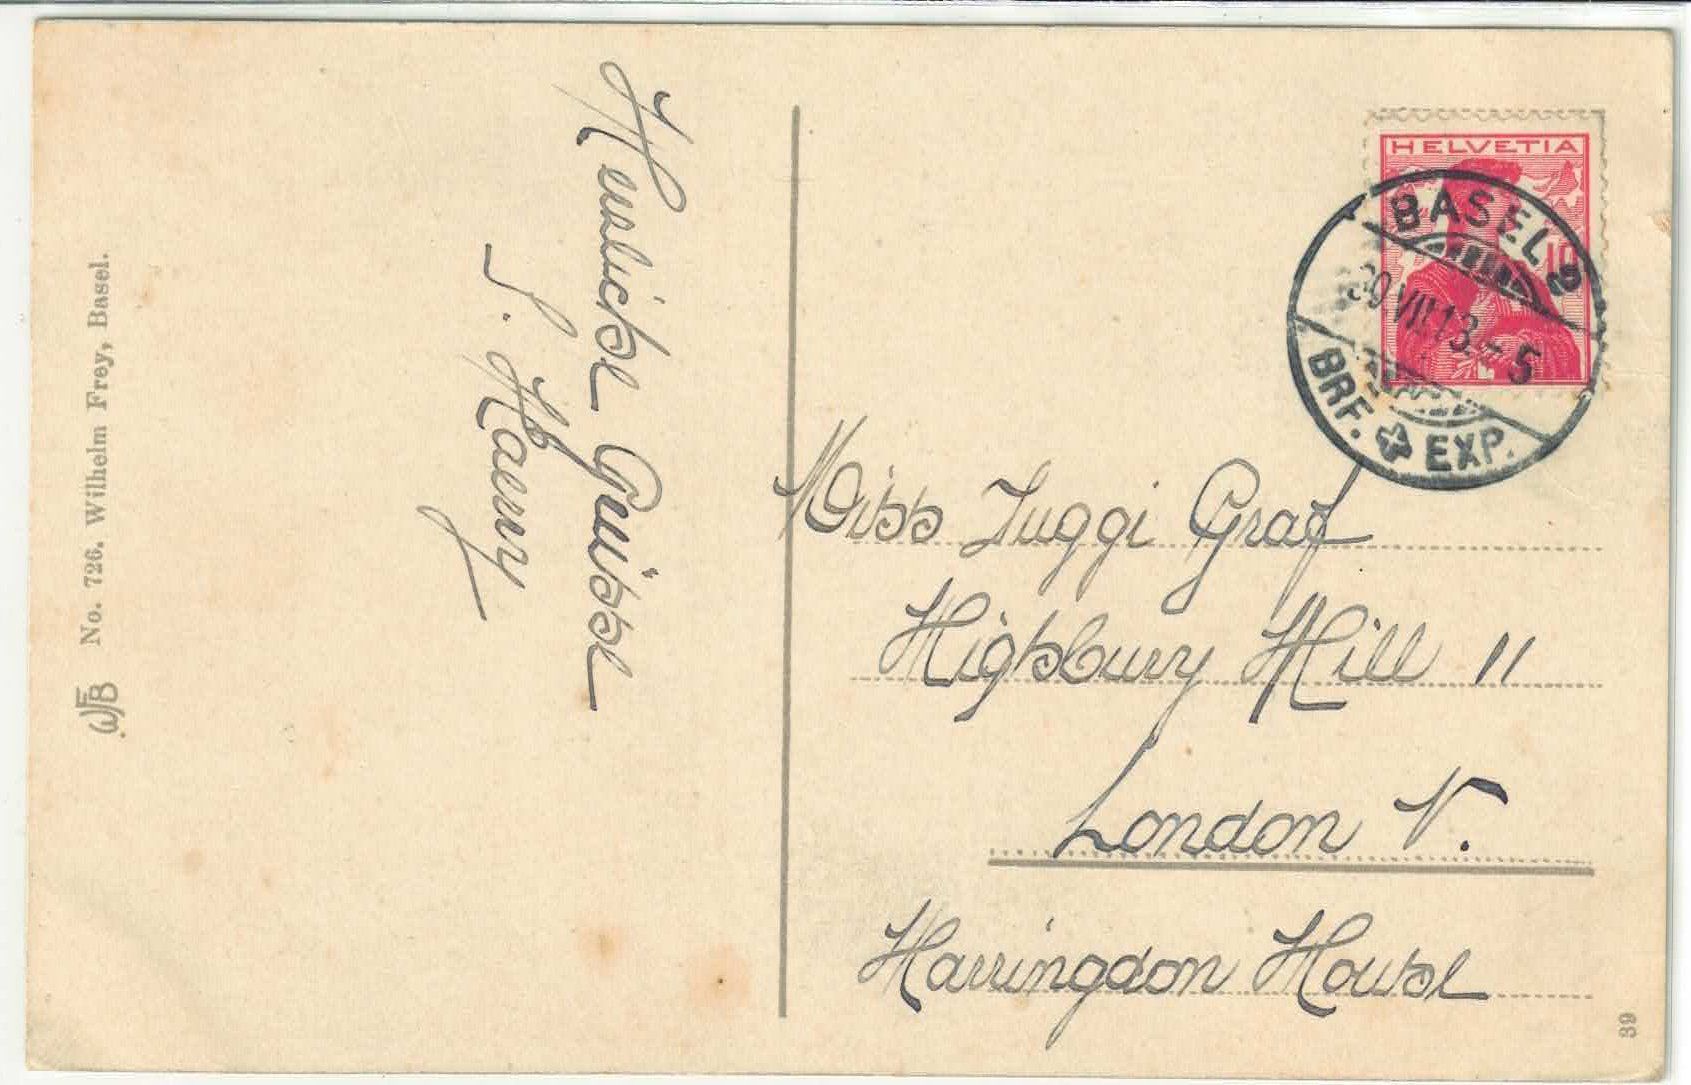 No. 726. Wilhelm Frey, Basel.
WFB
Herzliche Grüsse
S. Haeny
HELVETIA
10
BASEL 2
30.VII.13.-5
BRF. EXP.
Miss Juggi Graf
Highbury Hill 11
London N.
Harringdon House
39